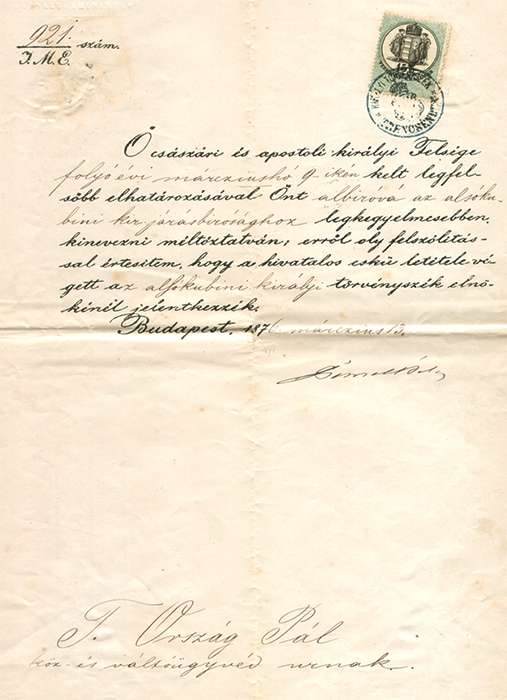 921. szám.
I. M. E.
Ő császári és apostoli királyi Felsége
folyó évi márcziushó 9-iken kelt legfel-
sőbb elhatározásával Önt albiróvá az alsóku-
bini kir. járásbirósághoz legkegyelmesebben
kinevezni méltóztatván; erről oly felszólitás-
sal értesitem, hogy a hivatalos eskü letétele vé-
gett az alsókubini királyi törvényszék elnö-
kénél jelentkezzék.
Budapest, 1876 márczius 13.
T. Ország Pál
köz- és váltóügyvéd urnak.